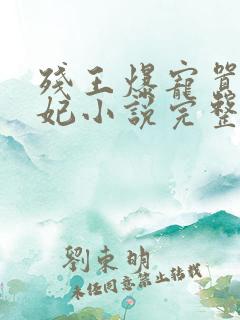 残王爆宠嚣
妃小说完整
劉東明
未经同意禁止转载